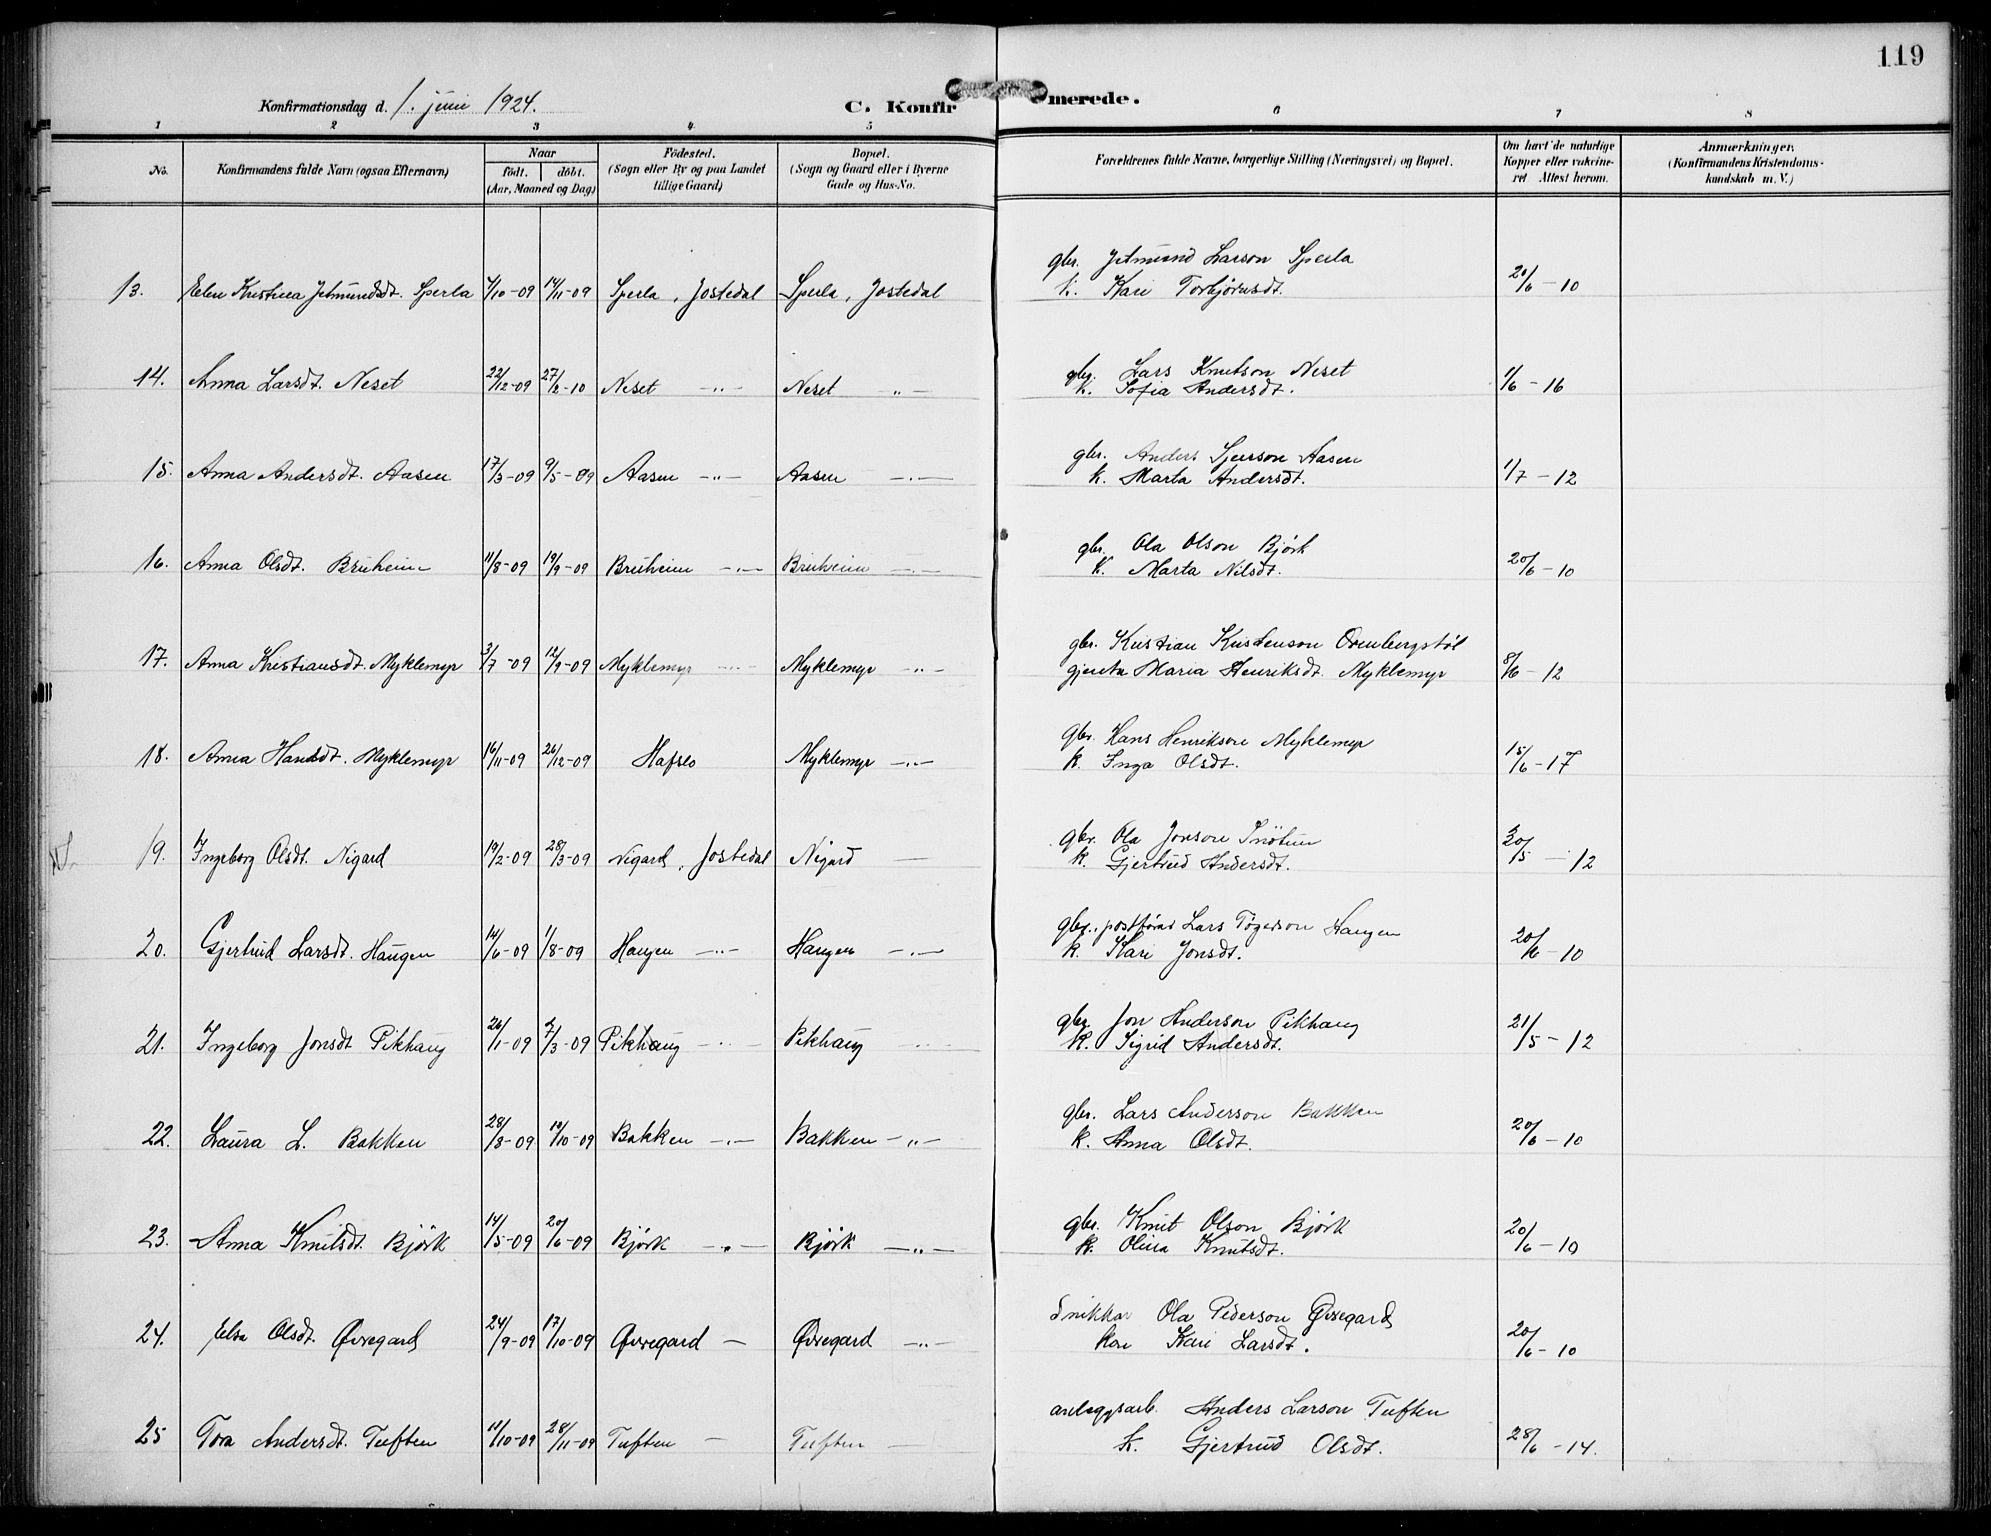 119
Konfirmationsdag d. 1. juni 1924. C. Konfirmerede.
1 2 3 4 5 6 7 8
No. Konfirmandens fulde Navn (ogsaa Efternavn) Naar födt. döbt. (Aar, Maaned og Dag) Födested. (Sogn eller By og paa Landet tillige Gaard) Bopæl. (Sogn og Gaard eller i Byerne Gade og Hus-No. Forældrenes fulde Navne, borgerlige Stilling (Næringsvei) og Bopæl. Om havt de naturlige Kopper eller vakcineret Attest herom. Anmærkninger. (Konfirmandens Kristendomskundskab m. V.)
gbr. Jetmund Larson Sperla
13. Elen Kristina Jetmundsdt. Sperla 4/10-09 14/11-09 Sperla, Jostedal Sperla, Jostedal k. Kari Torbjörnsdt. 20/6-10
gbr. Lars Knutson Neset
14. Anna Larsdt. Neset 22/12-09 27/2-10 Neset -"- Neset "- k. Sofia Andersdt. 1/6-16
gbr. Anders Sjurson Aasen
15. Anna Andersdt. Aasen 17/3-09 9/5-09 Aasen -"- Aasen -"- k. Marta Andersdt. 1/7-12
gbr. Ola Olson Bjørk
16. Anna Olsdt. Bruheim 11/8-09 19/9-09 Bruheim -"- Bruheim -"- k. Marta Nilsdt. 20/6-10
gbr. Kristian Kristenson Ormbergstøl
17. Anna Kristiansdt. Myklemyr 3/7-09 12/9-09 Myklemyr -"- Myklemyr -"- gjenta Maria Henriksdt. Myklemyr 8/6-12
gbr. Hans Henrikson Myklemyr
18. Anna Hansdt. Myklemyr 16/11-09 26/12-09 Hafslo Myklemyr -"- k. Inga Olsdt. 15/6-17
gbr. Ola Jonson Snøtun
19. Ingeborg Olsdt. Nigard 19/2-09 28/3-09 Nigard, Jostedal Nigard - k. Gjertrud Andersdt. 30/5-12
gbr., postförar Lars Tøgerson Haugen
20. Gjertrud Larsdt. Haugen 14/6-09 1/8-09 Haugen -"- Haugen -"- k. Kari Jonsdt. 20/6-10
gbr. Jon Anderson Pikhaug
21. Ingeborg Jonsdt Pikhaug 26/1-09 7/3-09 Pikhaug -"- Pikhaug -"- k. Sigrid Andersdt. 21/5-12
gbr. Lars Anderson Bakken
22. Laura L. Bakken 28/8-09 10/10-09 Bakken -"- Bakken -"- k. Anna Olsdt. 20/6-10
gbr. Knut Olson Bjørk
23. Anna Knutsdt. Bjørk 14/5-09 20/6-09 Bjørk -"- Bjørk -"- k. Olina Knutsdt. 20/6-10
Snikkar Ola Pederson Øvregard
24. Elsa Olsdt. Øvregard 24/9-09 17/10-09 Øvregard - Øvregard -"- kone Kari Larsdt. 20/6-10
anleggsarb. Anders Larson Tuften
25 Tora Andersdt. Tuften 11/10-09 28/11-09 Tuften - Tuften - k. Gjertrud Olsdt. 28/6-14.